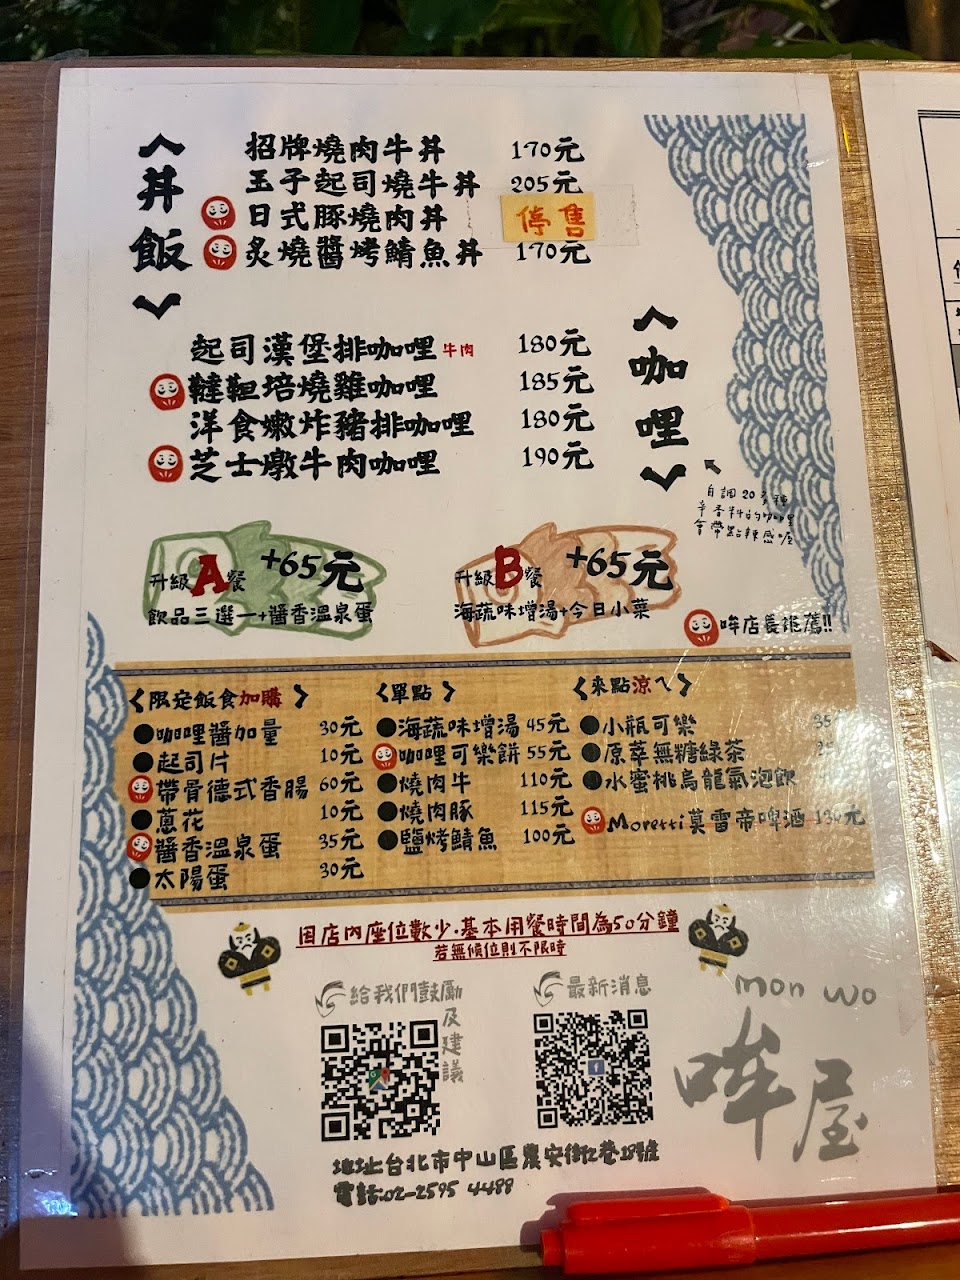 <丼飯>
招牌燒肉牛丼 170元
玉子起司燒牛丼 205元
日式豚燒肉丼 停售
炙燒醬烤鯖魚丼 170元
<咖哩>
起司漢堡排咖哩 牛肉 180元
韃靼培燒雞咖哩 185元
洋食嫩炸豬排咖哩 180元
芝士燉牛肉咖哩 190元
自調20多種
辛香料的咖哩
會帶點辣感喔
升級A餐 +65元
飲品三選一+醬香溫泉蛋
升級B餐 +65元
海蔬味增湯+今日小菜
哞店長推薦!!
<限定飯食加購>
咖哩醬加量 30元
起司片 10元
帶骨德式香腸 60元
蔥花 10元
醬香溫泉蛋 35元
太陽蛋 30元
<單點>
海蔬味增湯 45元
咖哩可樂餅 55元
燒肉牛 110元
燒肉豚 115元
鹽烤鯖魚 100元
<來點涼ㄟ>
小瓶可樂
原萃無糖綠茶
水蜜桃烏龍氣泡飲
Moretti莫雷帝啤酒 130元
因店內座位數少·基本用餐時間為50分鐘
若無候位則不限時
給我們鼓勵及建議
最新消息
mon wo
哞屋
地址台北市中山區農安街2巷18號
電話:02-2595 4488